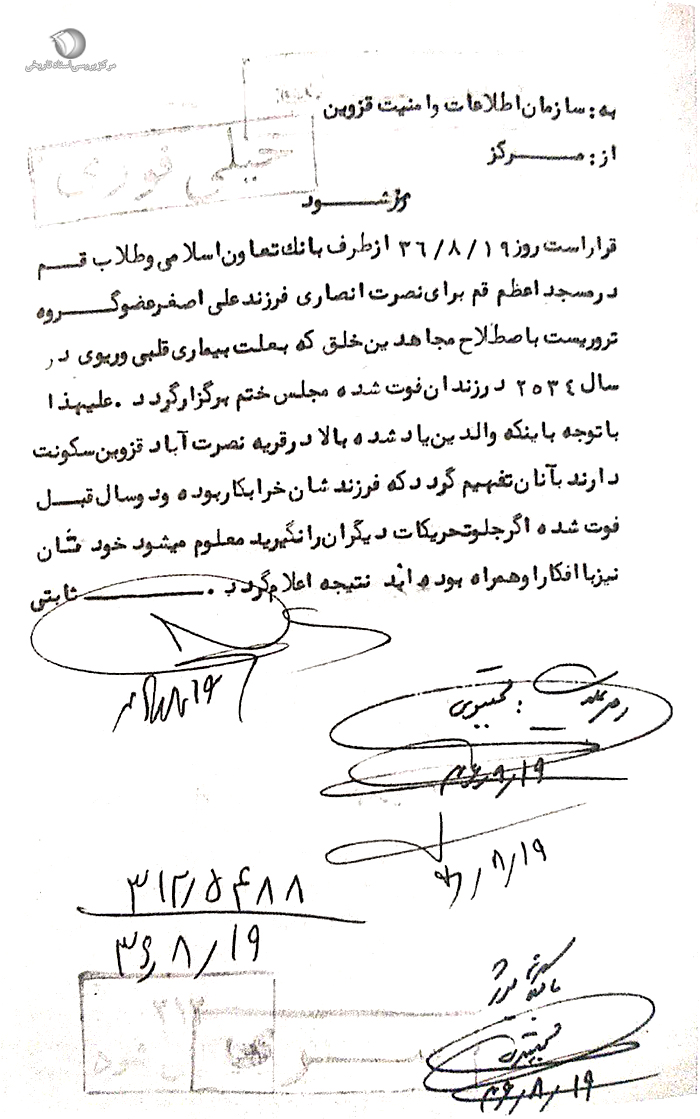 مرکز بررسی اسناد تاریخی
به: سازمان اطلاعات و امنیت قزوین
از: مرکز
خیلی فوری
رمز شود
قرار است روز ۳۶/۸/۱۹ از طرف بانک تعاون اسلامی و طلاب قم
در مسجد اعظم قم برای نصرت انصاری فرزند علی اصغر عضو گروه
تروریست باصطلاح مجاهدین خلق که بعلت بیماری قلبی و ریوی در
سال ۲۵۳۴ در زندان فوت شده مجلس ختم برگزار گردد . علیهذا
با توجه باینکه والدین یاد شده بالا در قریه نصرت آباد قزوین سکونت
دارند بآنان تفهیم گردد که فرزند شان خرابکار بوده و دو سال قبل
فوت شده اگر جلو تحریکات دیگران را نگیرید معلوم میشود خود شان
نیز با افکار او همراه بوده اند نتیجه اعلام گردد . ثابتی
۳۶/۸/۱۹
۸/۱۹
۳۱۲/۵۴۸۸
۳۶/۸/۱۹
۳۱۲
۳۶/۸/۱۹